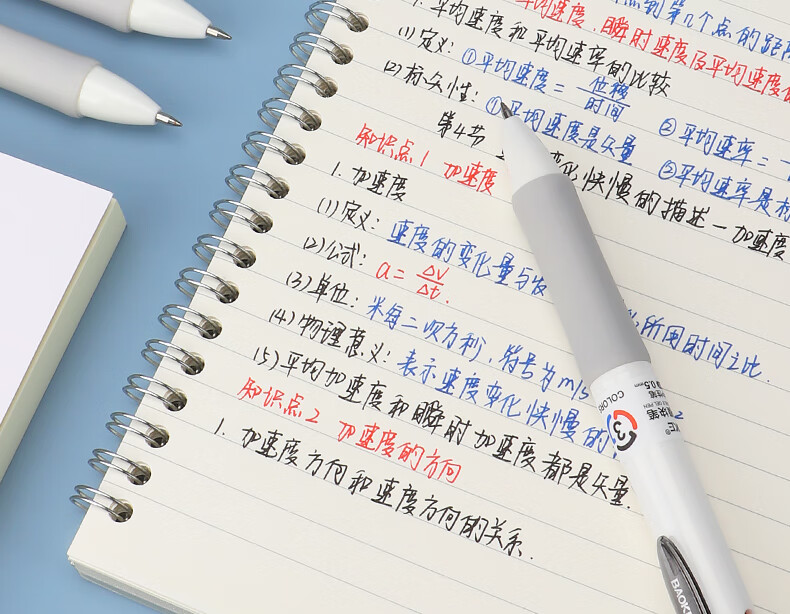 点到第几个点的距
1. 平均速度、平均速度、瞬时速度及平均速度
平均速度和平均速率的比较
(1) 定义: ①平均速度 = 位移/时间 ②平均速率 =
(2) 标矢性: ①平均速度是矢量 ②平均速率是标
第4节 变化快慢的描述一加速度
知识点1 加速度
1. 加速度
(1) 定义: 速度的变化量与发 所用时间之比.
(2) 公式: a = Δv/Δt.
(3) 单位: 米每二次方秒, 符号为 m/s 2
(4) 物理意义: 表示速度变化快慢的
(5) 平均加速度和瞬时加速度都是矢量.
知识点2 加速度的方向
1. 加速度方向和速度方向的关系.
3
COLORS
0.5mm
BAOK